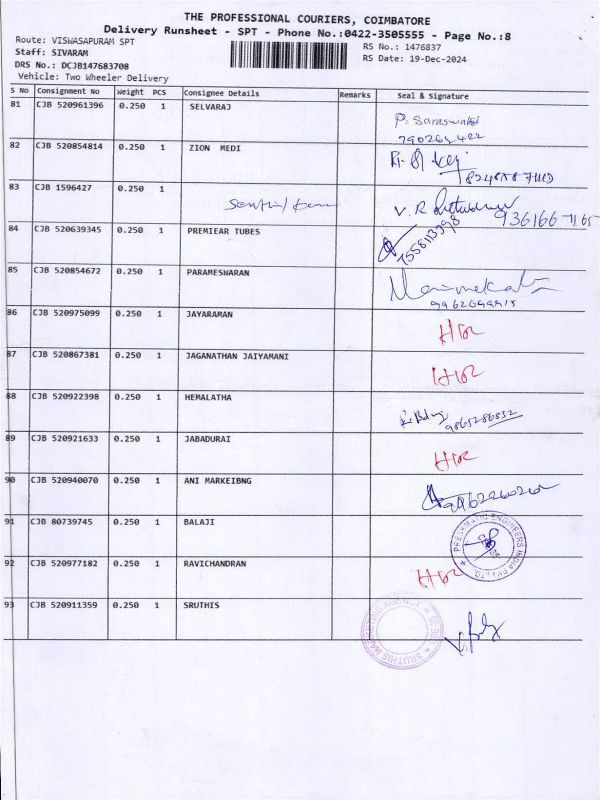 THE PROFESSIONAL COURIERS, COIMBATORE
Delivery Runsheet - SPT - Phone No.:0422-3505555 - Page No.:8
Route: VISWASAPURAM SPT
RS No.: 1476837
Staff: SIVARAM
RS Date: 19-Dec-2024
DRS No.: DCJB147683708
Vehicle: Two Wheeler Delivery
S No Consignment No Weight PCS Consignee Details Remarks Seal & Signature
81 CJB 520961396 0.250 1 SELVARAJ P. Saraswathi
82 CJB 520854814 0.250 1 ZION MEDI
83 CJB 1596427 0.250 1
84 CJB 520639345 0.250 1 PREMIEAR TUBES
85 CJB 520854672 0.250 1 PARAMESWARAN
86 CJB 520975099 0.250 1 JAYARAMAN
87 CJB 520867381 0.250 1 JAGANATHAN JAIYAMANI
88 CJB 520922398 0.250 1 HEMALATHA
9865286532
89 CJB 520921633 0.250 1 JABADURAI
90 CJB 520940070 0.250 1 ANI MARKEIBNG
91 CJB 80739745 0.250 1 BALAJI
92 CJB 520977182 0.250 1 RAVICHANDRAN
93 CJB 520911359 0.250 1 SRUTHIS
SRUTHIS MARKETING AGENCY